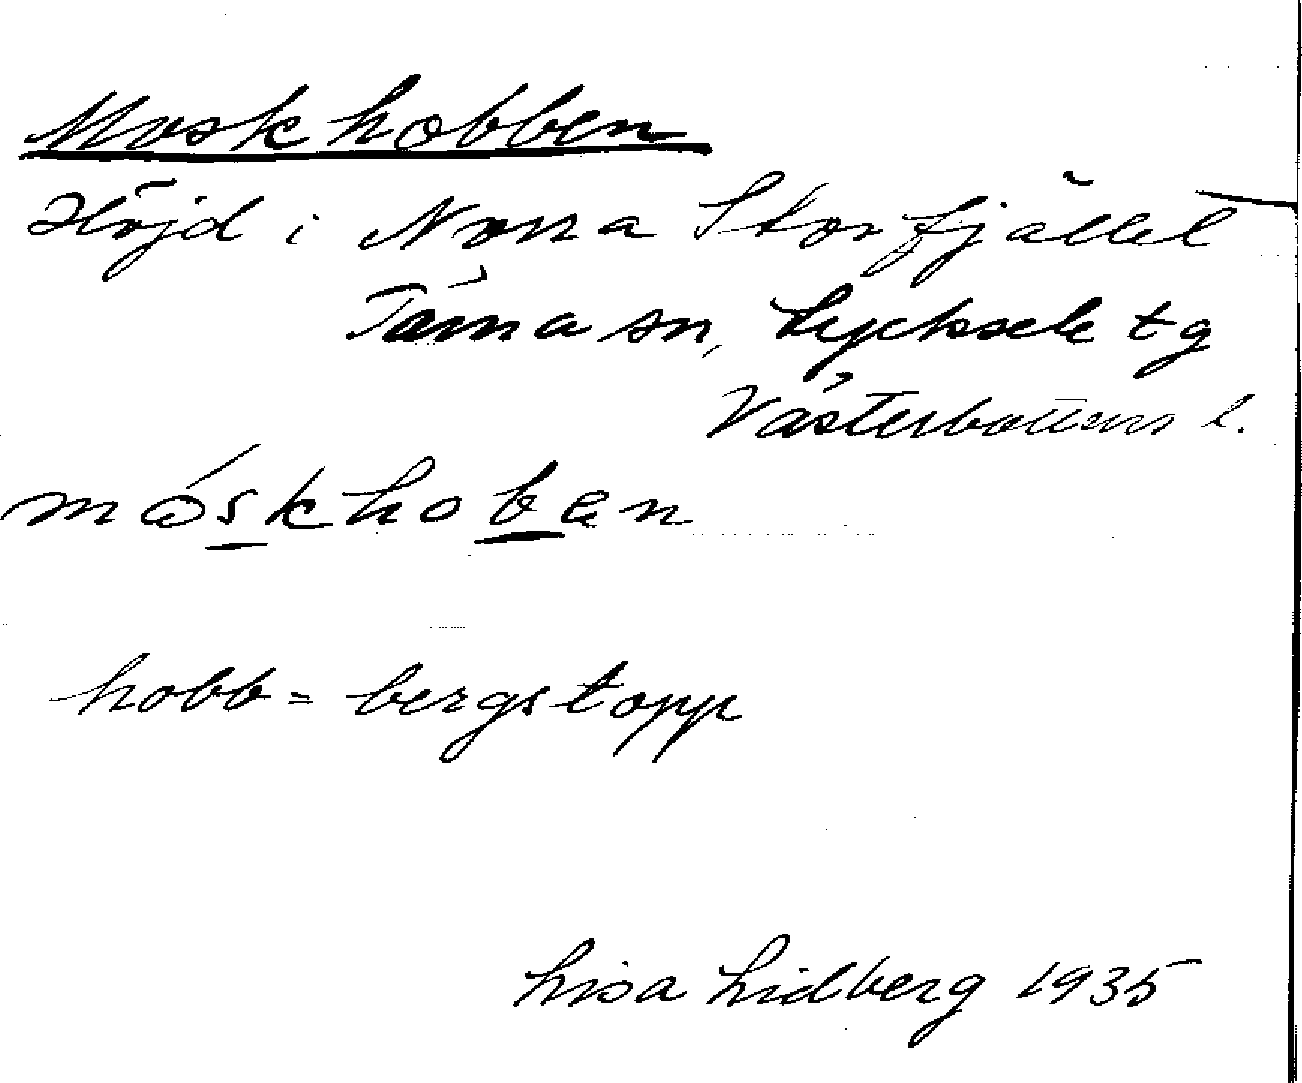 Moskhobben
Höjd i Norra Storfjället
Tärna sn, Lycksele tg
Västerbottens l.
måskhoben
hobb = bergstopp
Lisa Lidberg 1935